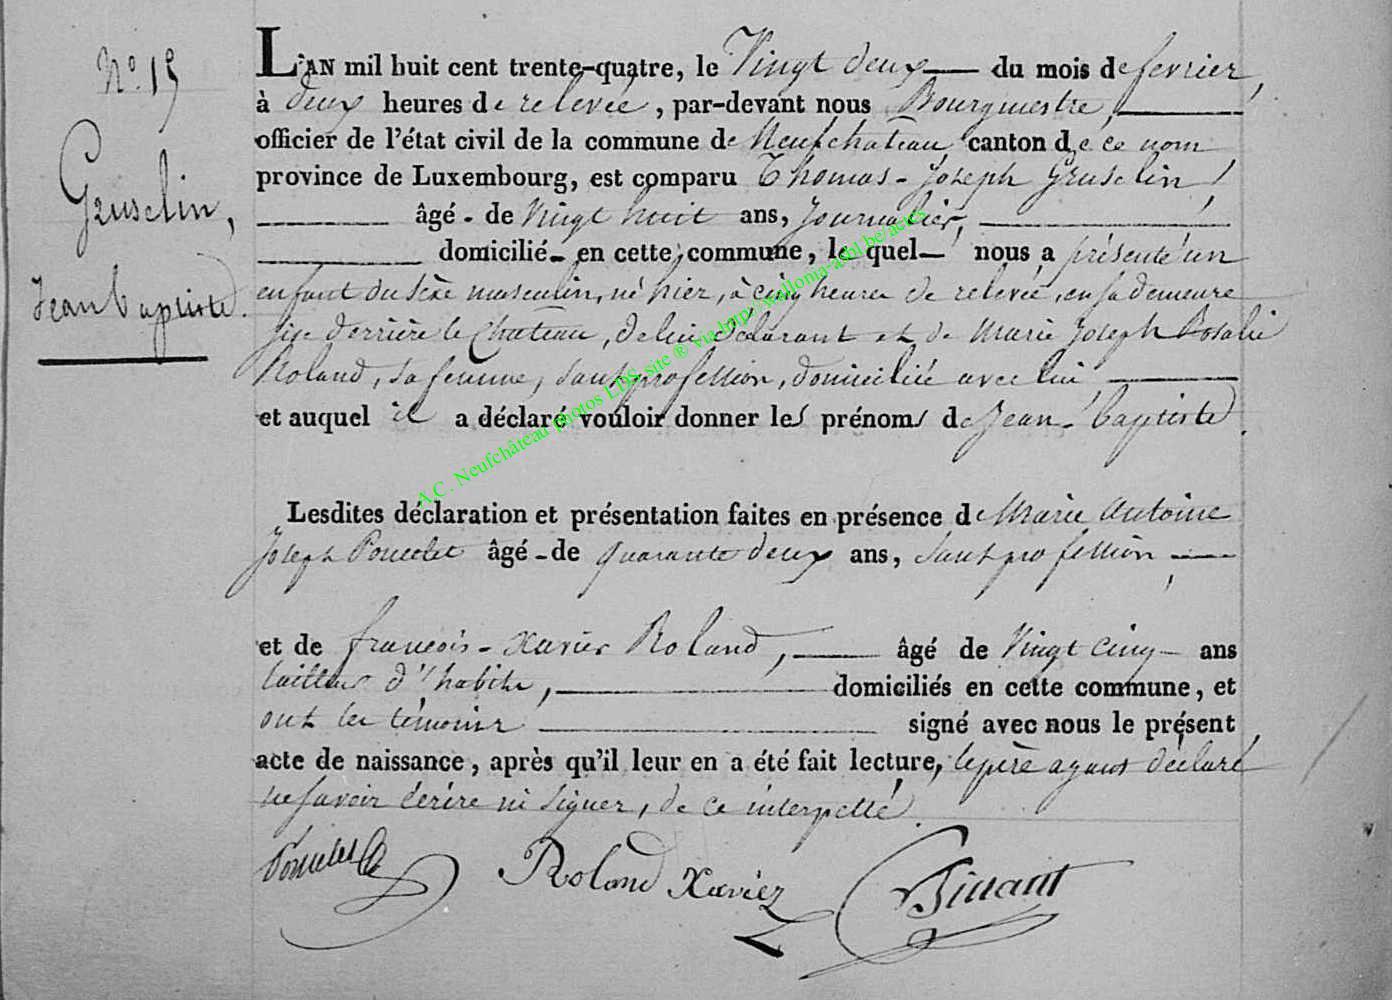 N° 15
Gruselin,
Jean baptiste.
L'AN mil huit cent trente-quatre, le Vingt deux du mois de fevrier,
à deux heures de relevée, par-devant nous Bourgmestre,
officier de l'état civil de la commune de Neufchateau canton de ce nom
province de Luxembourg, est comparu Thomas-Joseph Gruselin,
âgé - de Vingt huit ans, Journalier,
domicilié en cette commune, lequel nous a présenté un
enfant du sexe masculin, né hier, à cinq heures de relevée, en sa demeure
sise derrière le Chateau, de lui déclarant et de Marie Joseph Rosalie
Roland, sa femme, sans profession, domiciliée avec lui
et auquel il a déclaré vouloir donner les prénoms de Jean-baptiste.
Lesdites déclaration et présentation faites en présence de Marie Antoine
Joseph Poncelet âgé - de quarante deux ans, sans profession,
et de françois-Xavier Roland, âgé de Vingt cinq ans
tailleur d'habits, domiciliés en cette commune, et
ont les témoins signé avec nous le présent
acte de naissance, après qu'il leur en a été fait lecture, le père ayant déclaré
ne savoir écrire ni signer, de ce interpellé.
Poncelet Roland Xavier
A.C. Neufchâteau photos LDS, site ® via http://wallonia-asbl.be/actes